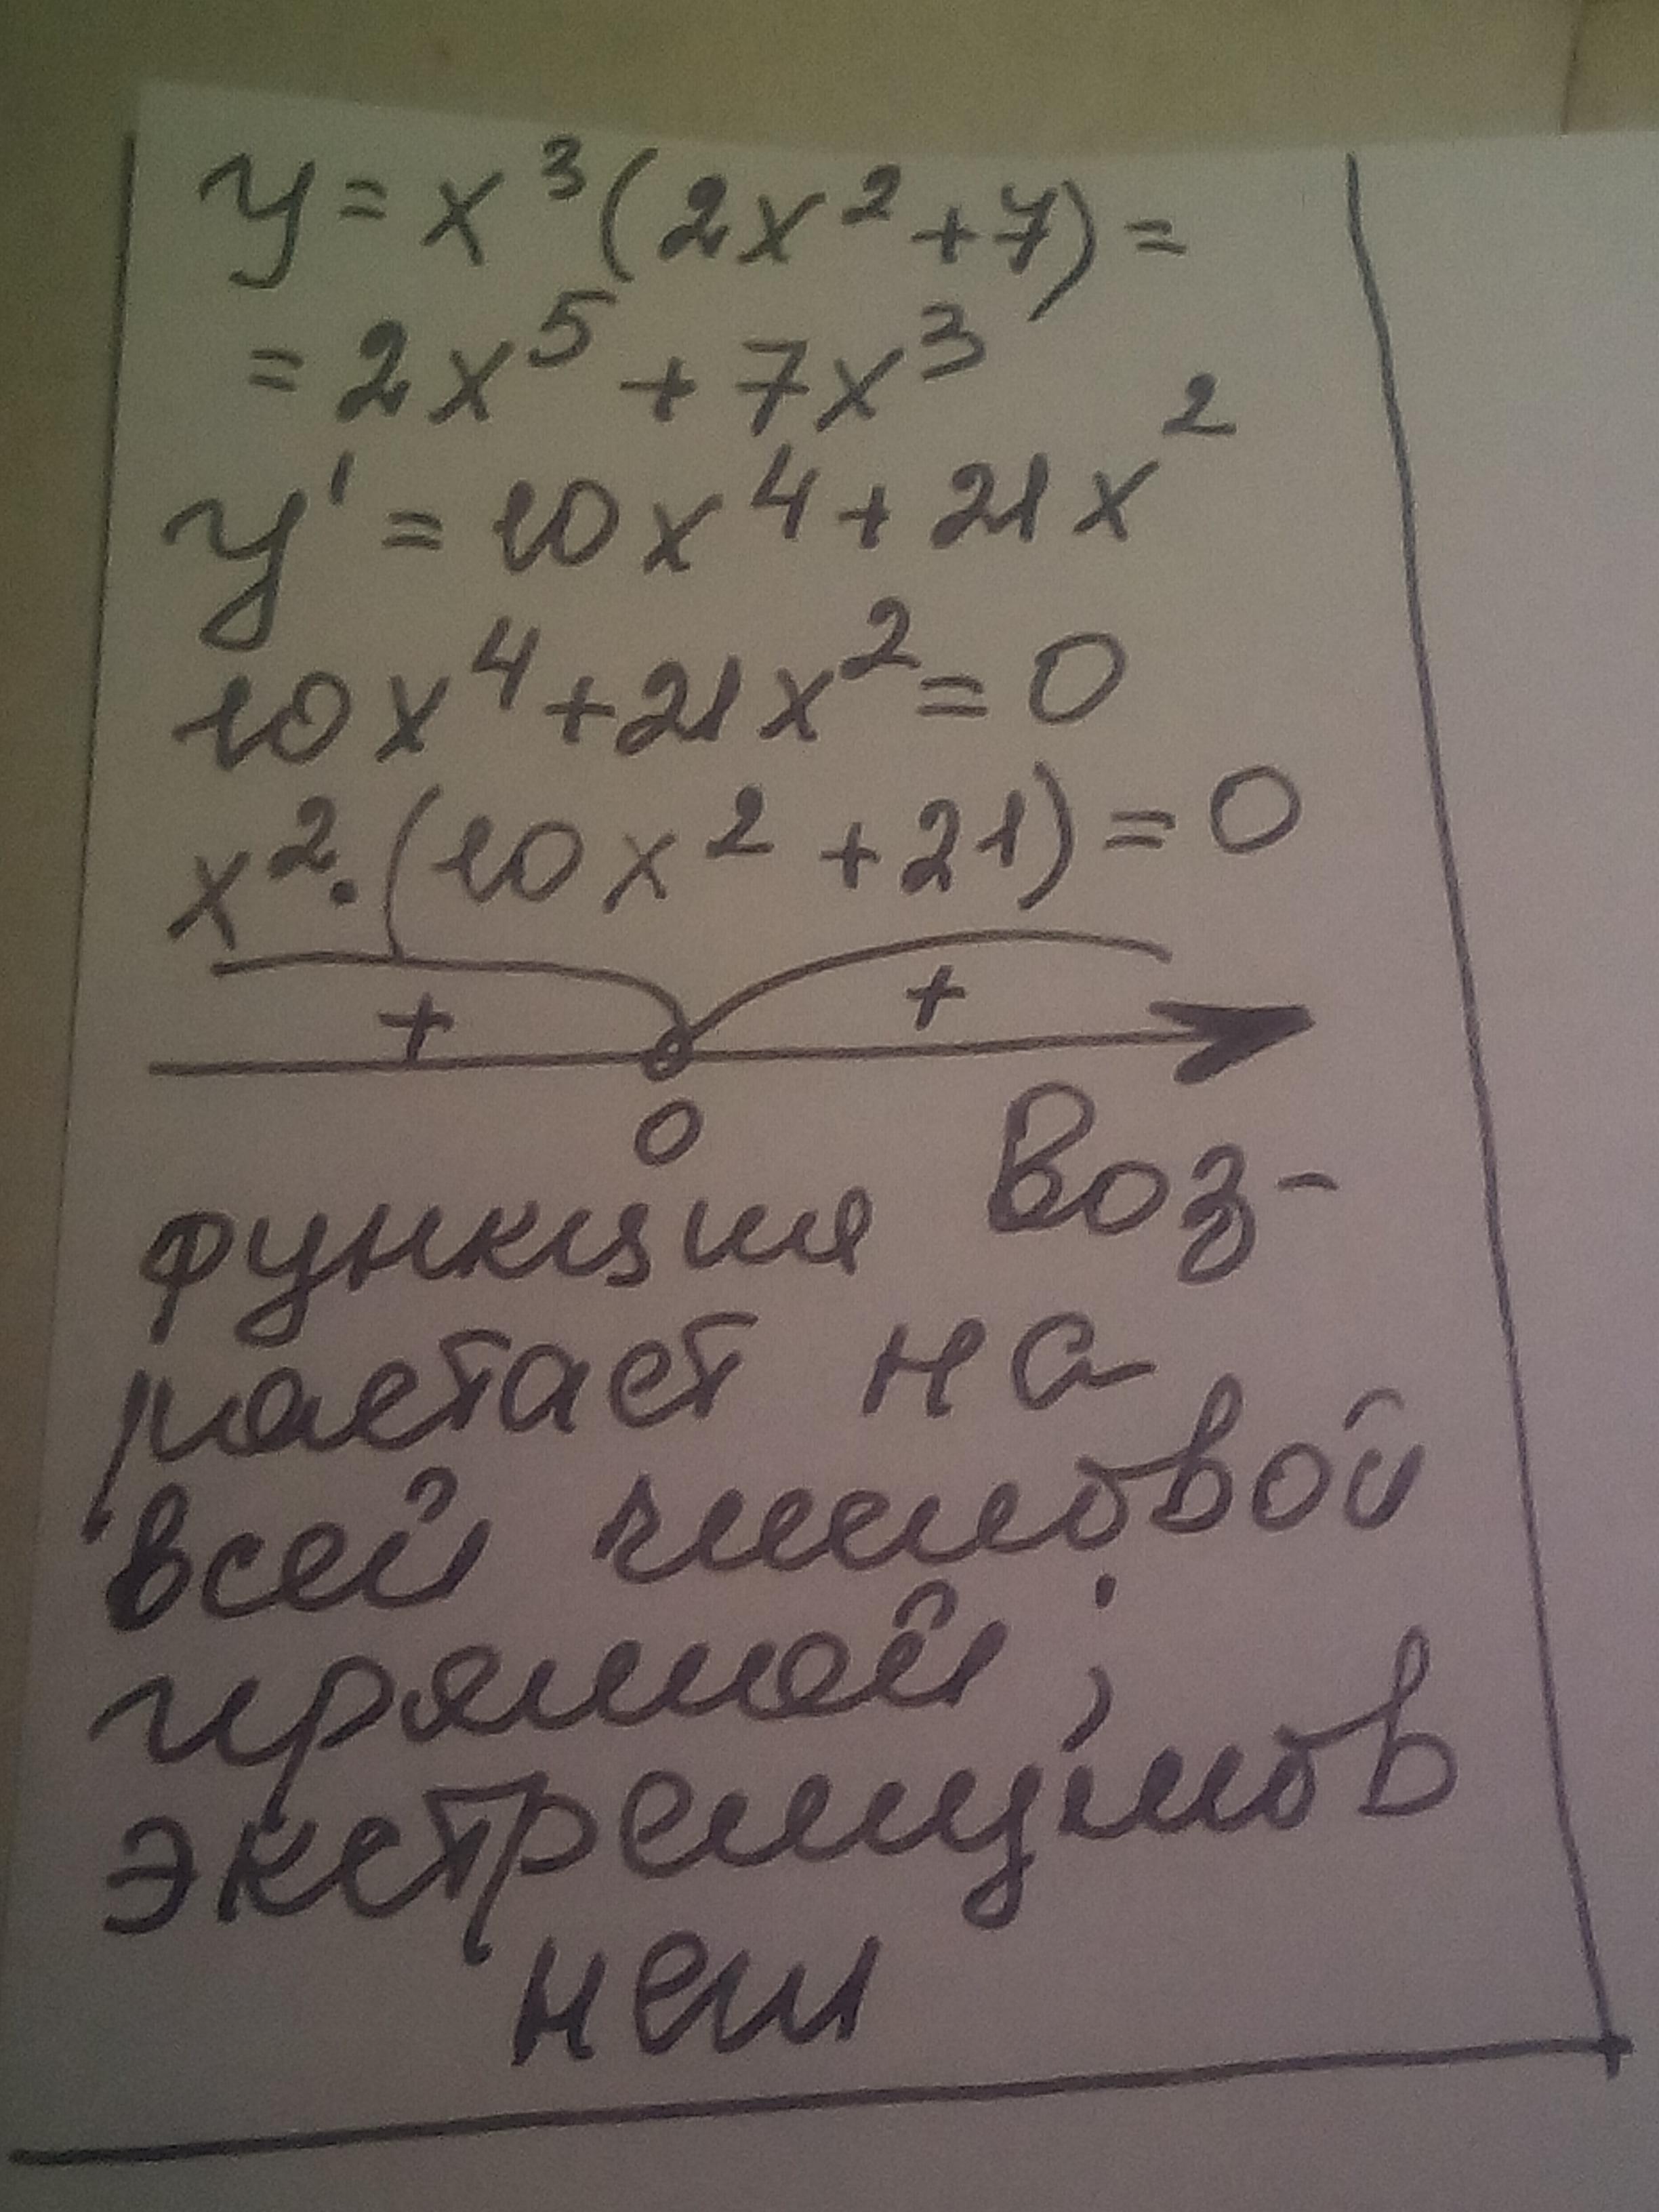 y = x³(2x² + 7) =
= 2x⁵ + 7x³
y' = 10x⁴ + 21x²
10x⁴ + 21x² = 0
x² · (10x² + 21) = 0
+ +
0
функция воз-
растает на
всей числовой
прямой;
экстремумов
нет